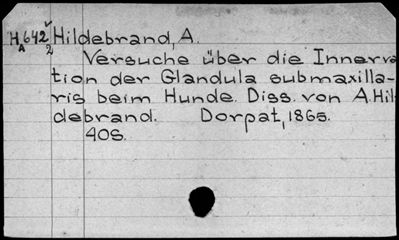 HA 642 v/2 Hildebrand, A.
Versuche über die Innerva
tion der Glandula submaxilla-
ris beim Hunde. Diss. von A. Hil
debrand. Dorpat, 1865.
40S.